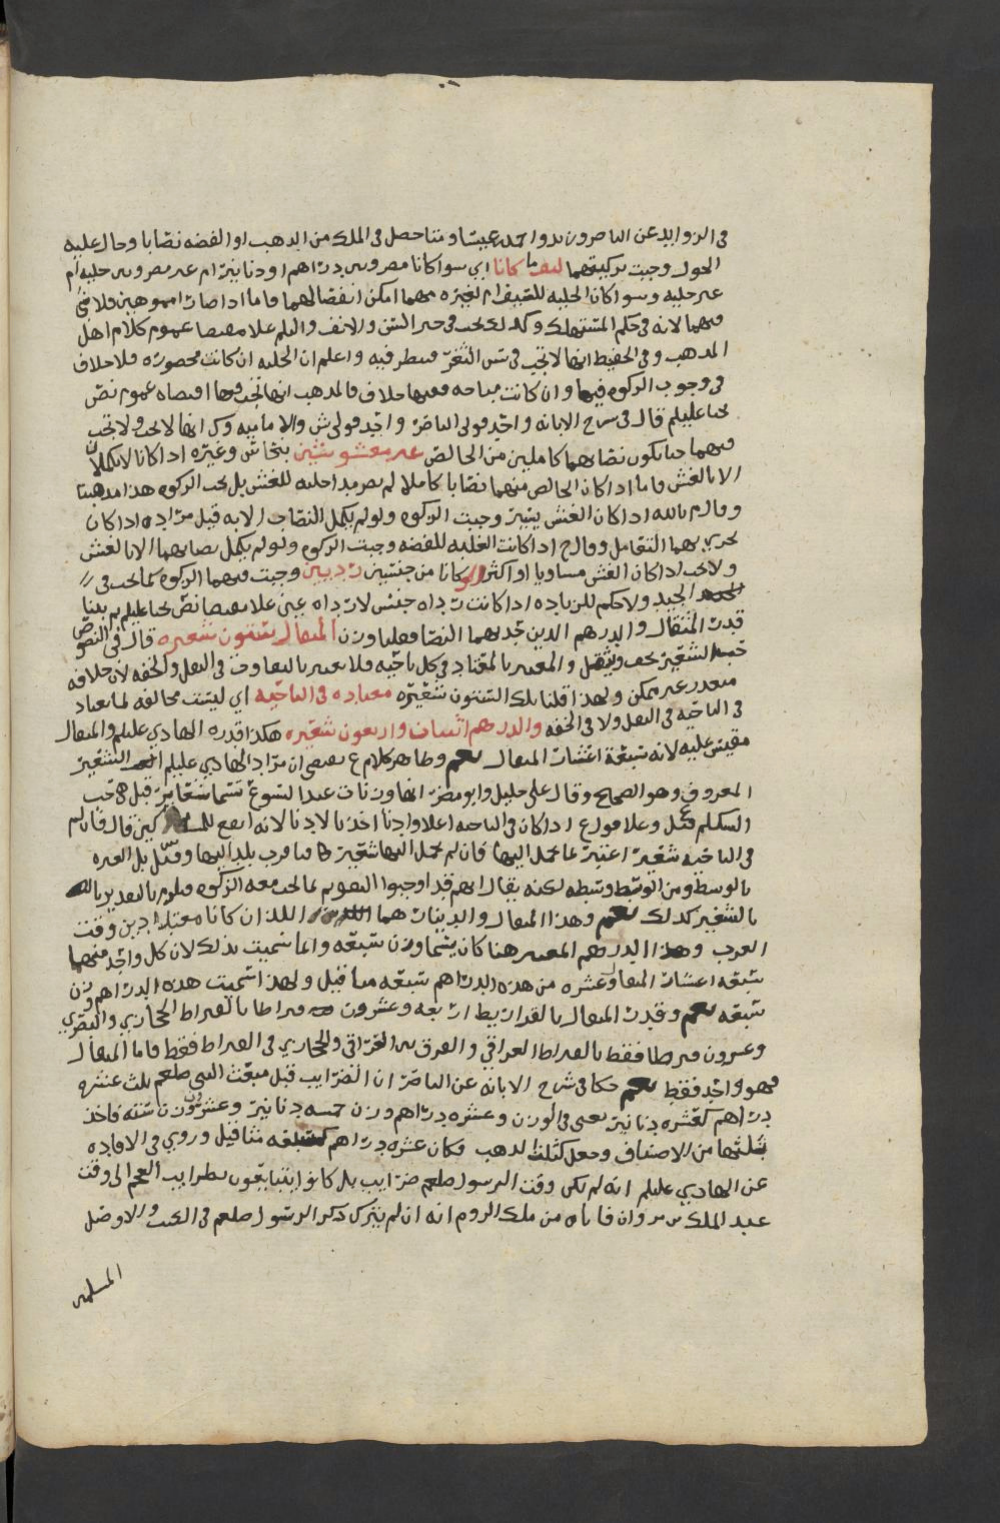 في الزوايد عن الناصر ومتا حصل في الملك من الذهب او الفضه نصابا وحال عليه
الحول وجبت تزكيتهما كيف ما كانا اي سوا كانا مضروبين دراهم او دنانير ام غير مضروبين حليه ام
غير حليه وسوا كان الحليه للسيف ام لغيره مهما امكن انفصالهما فاما اذا صارا مموهين فلا شئ
فيهما لانه في حكم المستهلك وكذلك يجب في جبر السن والانف والثلم علا مقتضا عموم كلام اهل
المذهب وفي الحفيظ انها لا تجب في سن الثغر فينظر فيه واعلم ان الحليه ان كانت محصوره فلا خلاف
في وجوب الزكوه فيها وان كانت مباحه ففيها خلاف فالمذهب انها تجب فيها اقتضاه عموم نص
يحيا عليلم قال في شرح الابانه واحد قولي الناصر واحد قولي ش والاماميه وك انها لا تجب ولا تجب
فيهما حتا يكون نصابهما كاملين من الخالص غير مغشوشين بنحاس وغيره اذا كانا لا يكملان
الا بالغش فاما اذا كان الخالص منهما نصابا كاملا لم يصر مداخله للغش بل تجب الزكوه هذا مذهبنا
وقال م بالله اذا كان الغش يسير وجبت الزكوه ولو لم يكمل النصاب الا به قيل مراده اذا كان
يجري بهما التعامل وقال ح اذا كانت الغلبه للفضه وجبت الزكوه ولو لم يكمل نصابهما الا بالغش
ولا تجب اذا كان الغش مساويا او اكثر او كانا من جنسين رديين وجبت فيهما الزكوه كما تجب في
الجيد ولا حكم للزياده اذا كانت رداه جنس لا رداه عين علا مقتضا نص يحيا عليلم ثم بينا
قدر المثقال والدرهم الذين تجد بهما النصا فقلنا وزن المثقال ستون شعيره قال في النصوص
حب الشعير يخف ويثقل والمعتبر بالمعتاد في كل ناحيه فلا يعتبر بالتفاوت في الثقل والخفه لان خلافه
متعذر غير ممكن ولهذا قلنا بتلك الستون شعيره معتاده في الناحيه اي ليست مخالفه لما يعتاد
في الناحيه في الثقل ولا في الخفه والدرهم اثنتان واربعون شعيره هكذا قدره الهادي عليلم والمثقال
مقيس عليه لانه سبعة اعشار المثقال نعم وظاهر كلام ع يقتضي ان مراد الهادي عليلم الشعير
المعروف وهو الصحيح وقال علي خليل وابو مضر انها وزنات عند السوغ تسما شعاير قيل ح تجب
قيل وعلا قول ع اذا كان في الناحيه اعلا وادنا اخذ بالادنا لانه انفع للمساكين قال فان لم
في الناحيه شعير اعتبر بما يحمل اليها فان لم يحمل اليها شعير فما قرب بلد اليها وقيل بل العبره
بالوسط ومن الوسط وسطه لكنه يقال انهم قد اوجبوا التقويم بما تجب معه الزكوه فيلزم بالتقدير بالله
بالشعير كذلك نعم وهذا المثقال والدينار هما اللذان كانا معتبرا دين وقت
العرب وهذا الدرهم المعتبر هنا كان يسما وزن سبعه وانما سميت بذلك لان كل واحد منهما
سبعه اعشار المثقال وعشره من هذه الدراهم سبعه مثاقيل ولهذا سميت هذه الدراهم وزن
سبعه نعم وقدر المثقال بالقراريط اربعه وعشرون قيراطا بالقيراط الحجازي والبصري
وعشرون قيرطا فقط بالقيراط العراقي والفرق بين العراقي والحجازي في القيراط فقط فاما المثقال
فهو واحد فقط نعم حكا في شرح الابانه عن الناصر ان الضرايب قبل مبعث النبي صلعم ثلث عشره
دراهم كعشره دنانير يعني في الوزن وعشره دراهم وزن خمسه دنانير وعشر وزن سته فاخذ
بثلثها من الاصناف وجعل كثلث الذهب فكان عشره دراهم كسبعه مثاقيل وروي في الافاده
عن الهادي عليلم انه لم تكن وقت الرسول صلعم ضرايب بل كانوا يتبايعون بضرايب العجم الى وقت
عبد الملك بن مروان فاتاه من ملك الروم انه ان لم يترك ذكر الرسول صلعم في الكتب والا وصل
المسلمين